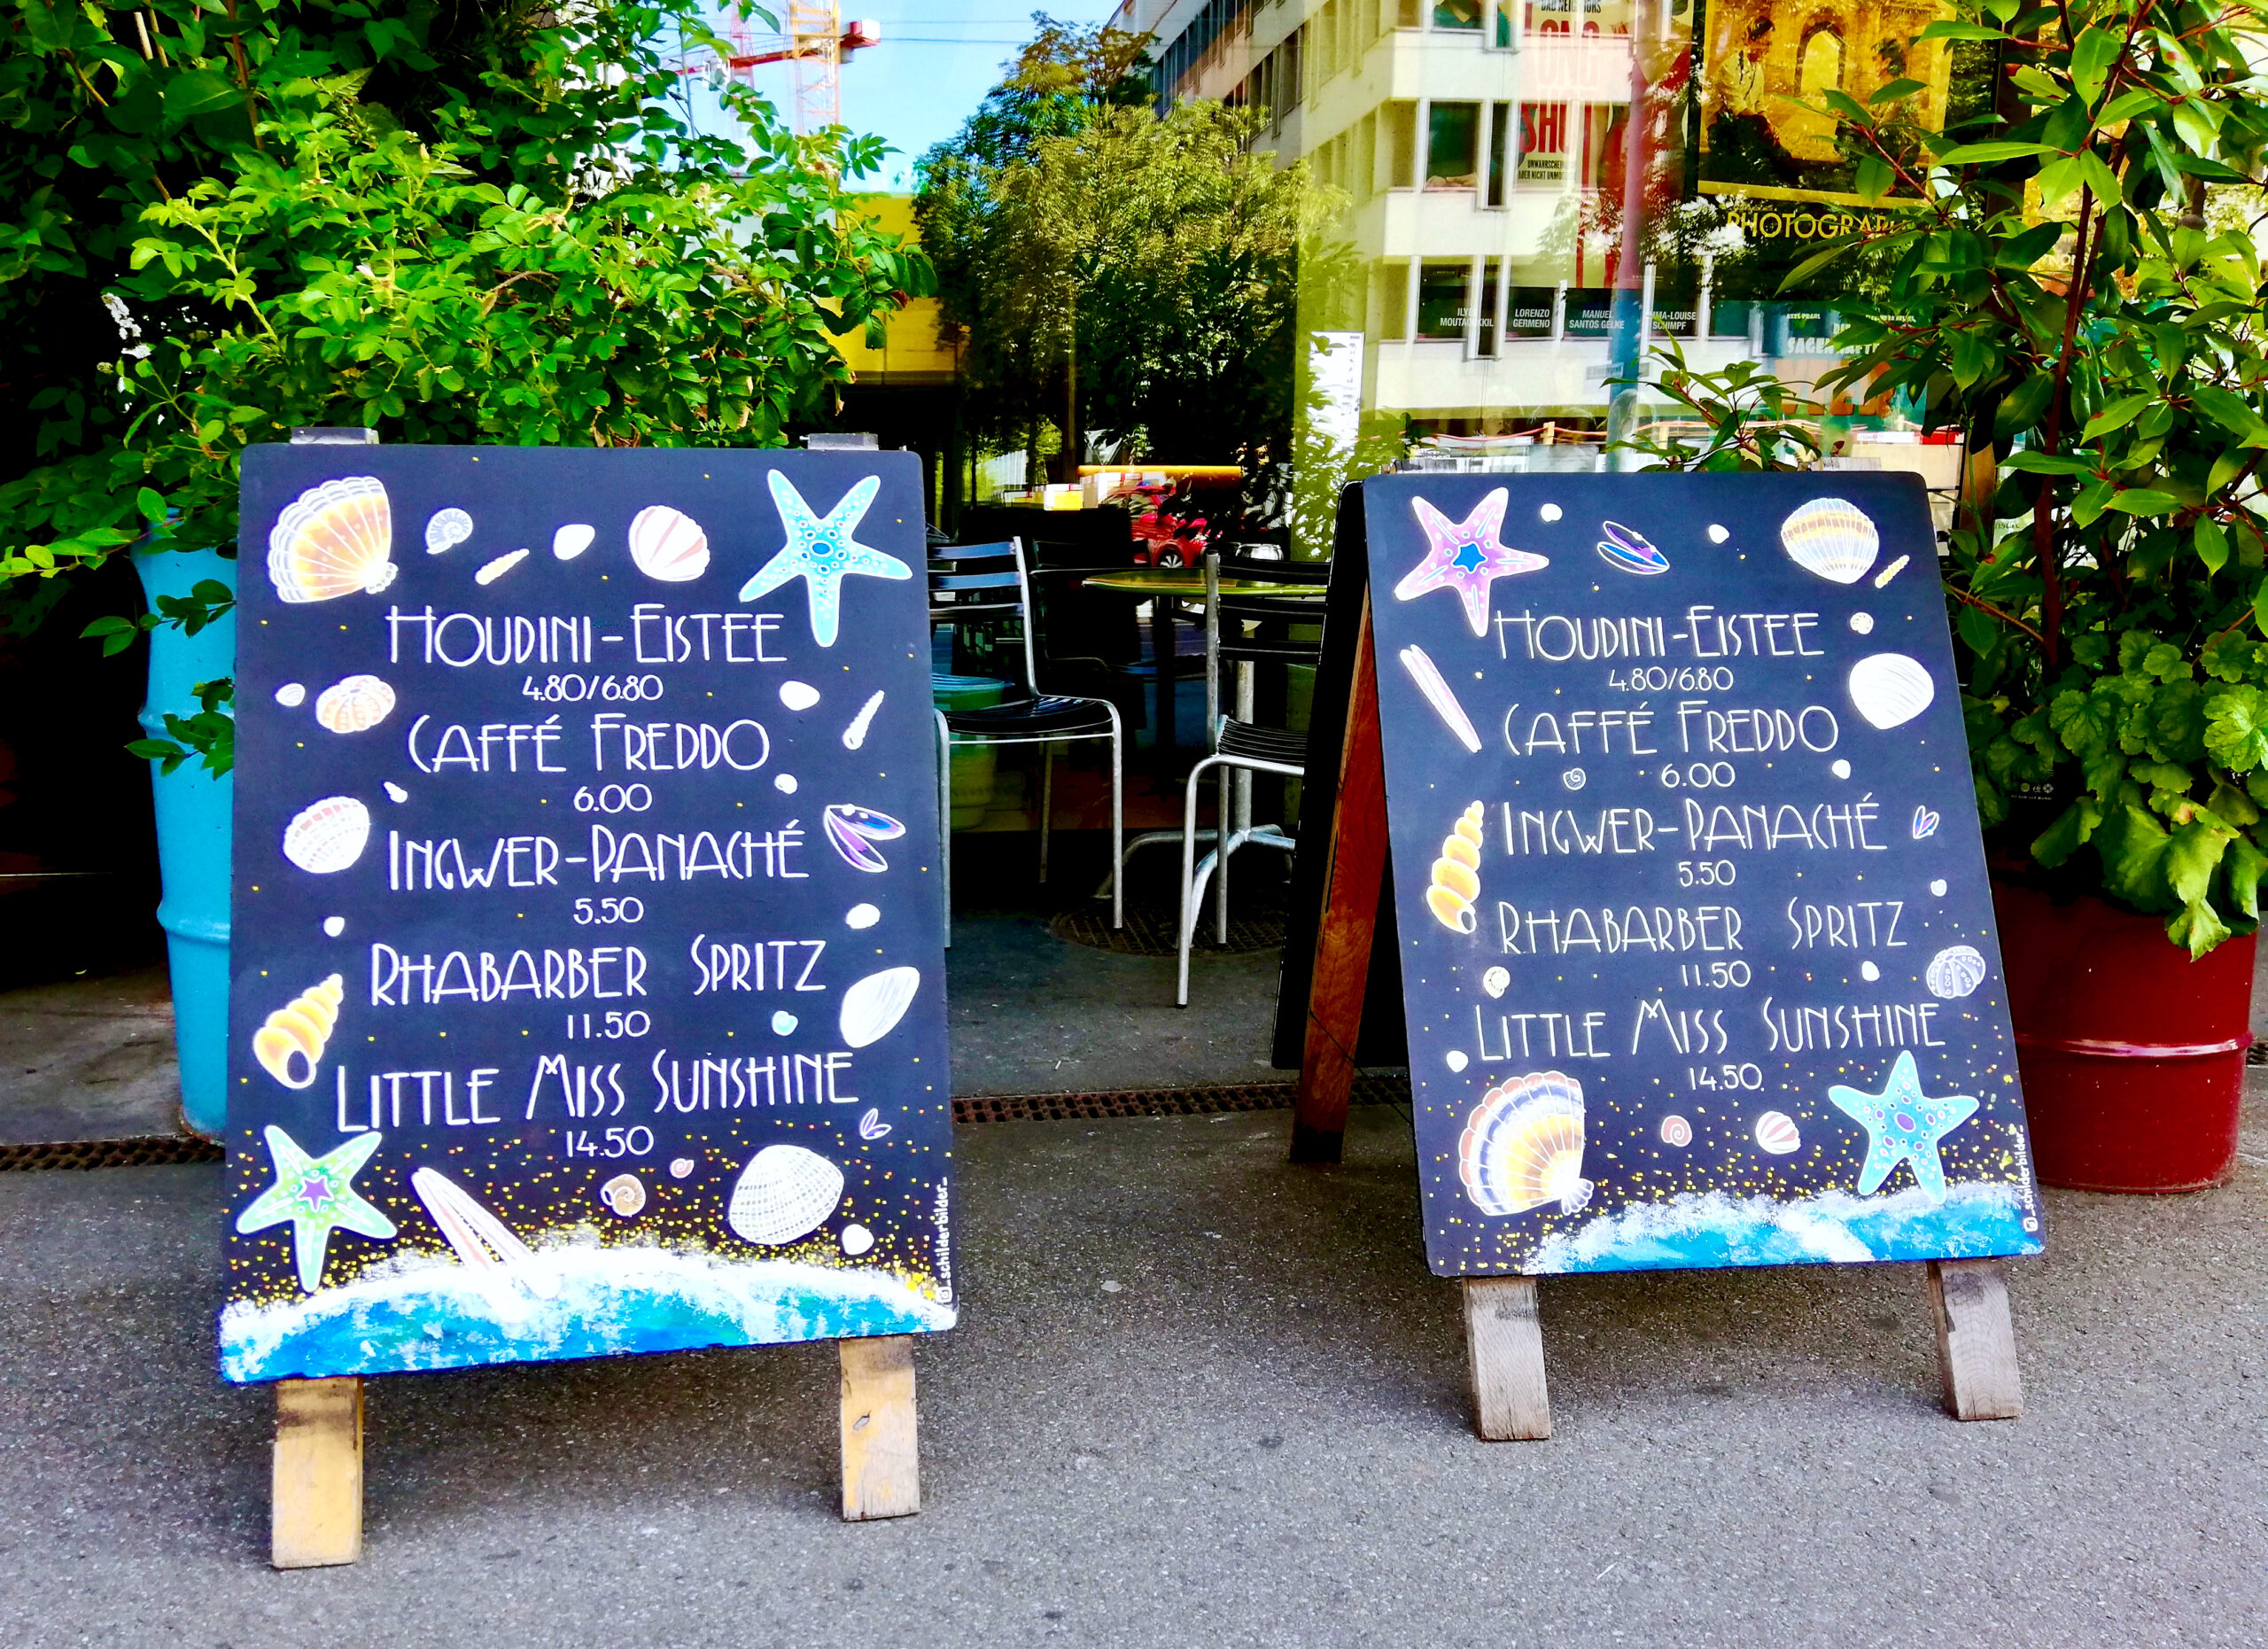 HOUDINI-EISTEE
4.80/6.80
CAFFÉ FREDDO
6.00
INGWER-PANACHÉ
5.50
RHABARBER SPRITZ
11.50
LITTLE MISS SUNSHINE
14.50
_schilderbilder_
HOUDINI-EISTEE
4.80/6.80
CAFFÉ FREDDO
6.00
INGWER-PANACHÉ
5.50
RHABARBER SPRITZ
11.50
LITTLE MISS SUNSHINE
14.50
_schilderbilder_
LONG
SHOT
UNWAHRSCHEINLICH
ABER NICHT UNMÖGLICH
LORENZO
GERMENO
MANUEL
SANTOS GELKE
SCHIMPF
PHOTOGRAPH